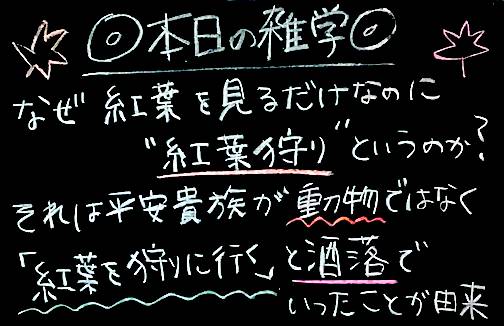 ◎本日の雑学◎
なぜ紅葉を見るだけなのに
"紅葉狩り"というのか?
それは平安貴族が動物ではなく
「紅葉を狩りに行く」と洒落で
いったことが由来